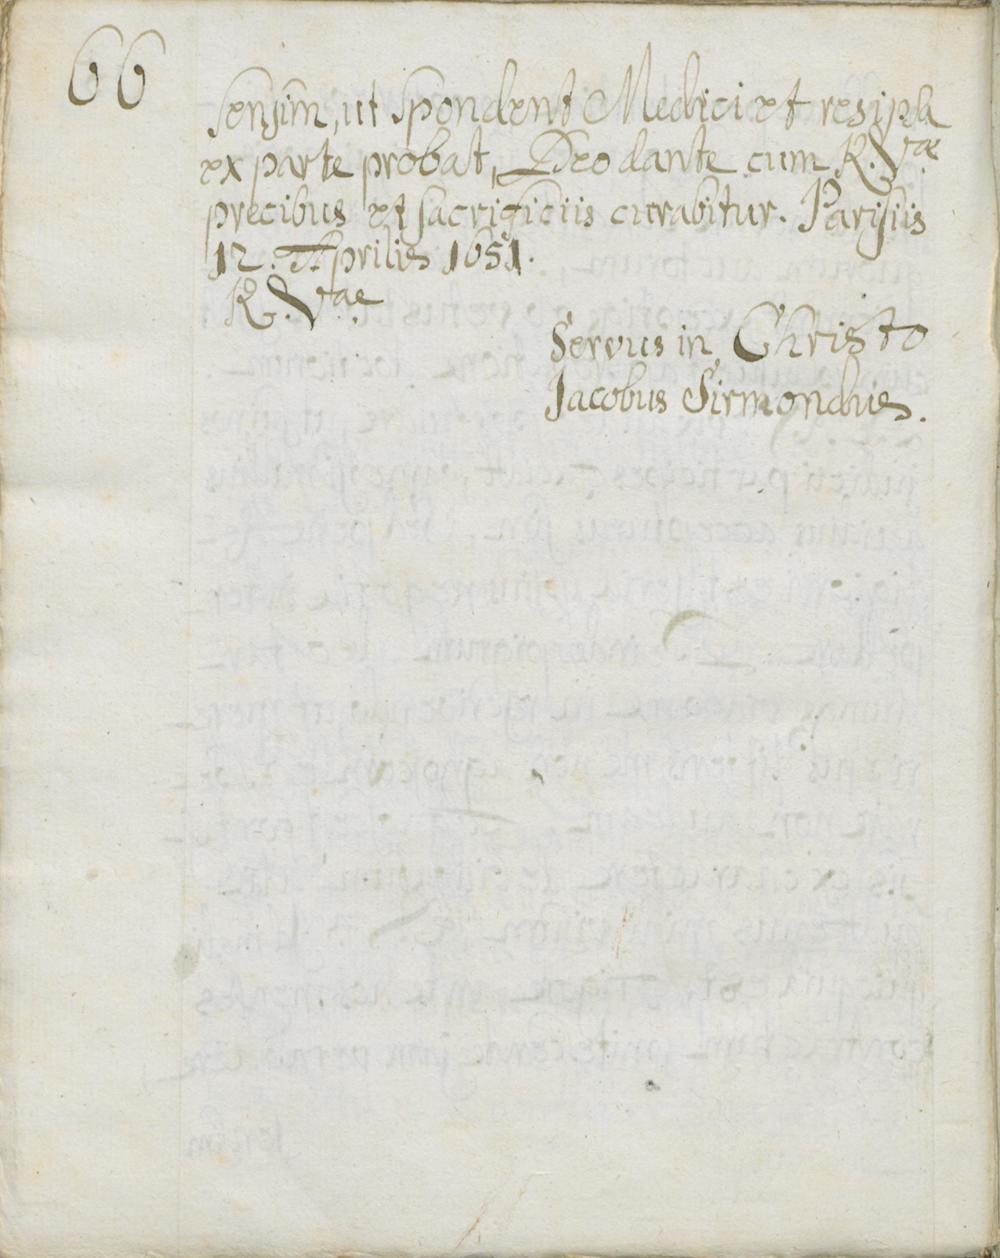 66
sensim, ut spondent Medici et res ipsa
ex parte probat, Deo dante cum R. Vae
precibus et sacrificiis curabitur. Parisiis
12. Aprilis 1651.
R. Vae
Servus in Christo
Jacobus Sirmondus.